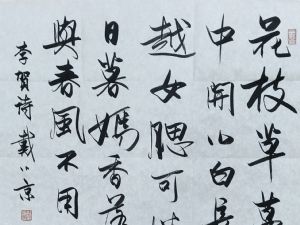 花枝草蔓
中開小白長
越女腮可
日暮嫣香落
與春風不用
李賀詩 戴小京